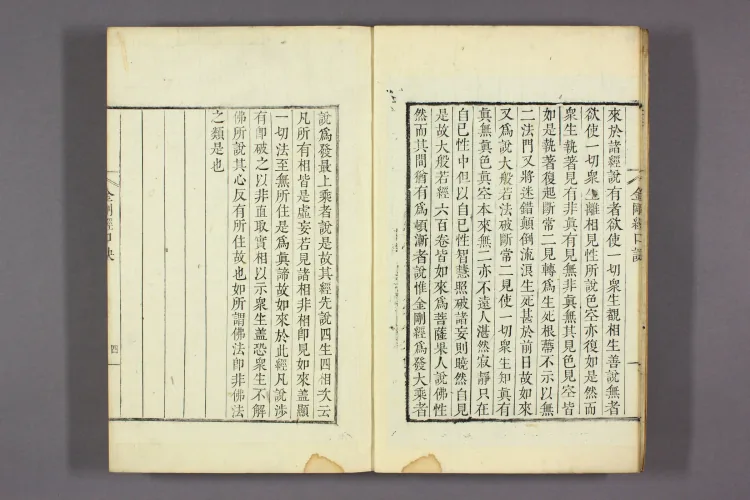 來於諸經說有者欲使一切衆生覩相生善說無者
欲使一切衆生離相見性所說色空亦復如是然而
衆生執著見有非真有見無非真無其見色見空皆
如是執著復起斷常二見轉爲生死根蔕不示以無
二法門又將迷錯顛倒流浪生死甚於前日故如來
又爲說大般若法破斷常二見使一切衆生知真有
真無真色真空本來無二亦不遠人湛然寂靜只在
自己性中但以自己性智慧照破諸妄則曉然自見
是故大般若經六百卷皆如來爲菩薩果人說佛性
然而其間猶有爲頓漸者說惟金剛經爲發大乘者
說爲發最上乘者說是故其經先說四生四相次云
凡所有相皆是虛妄若見諸相非相卽見如來蓋顯
一切法至無所住是爲真諦故如來於此經凡說涉
有卽破之以非直取實相以示衆生蓋恐衆生不解
佛所說其心反有所住故也如所謂佛法卽非佛法
之類是也
金剛經口訣
四